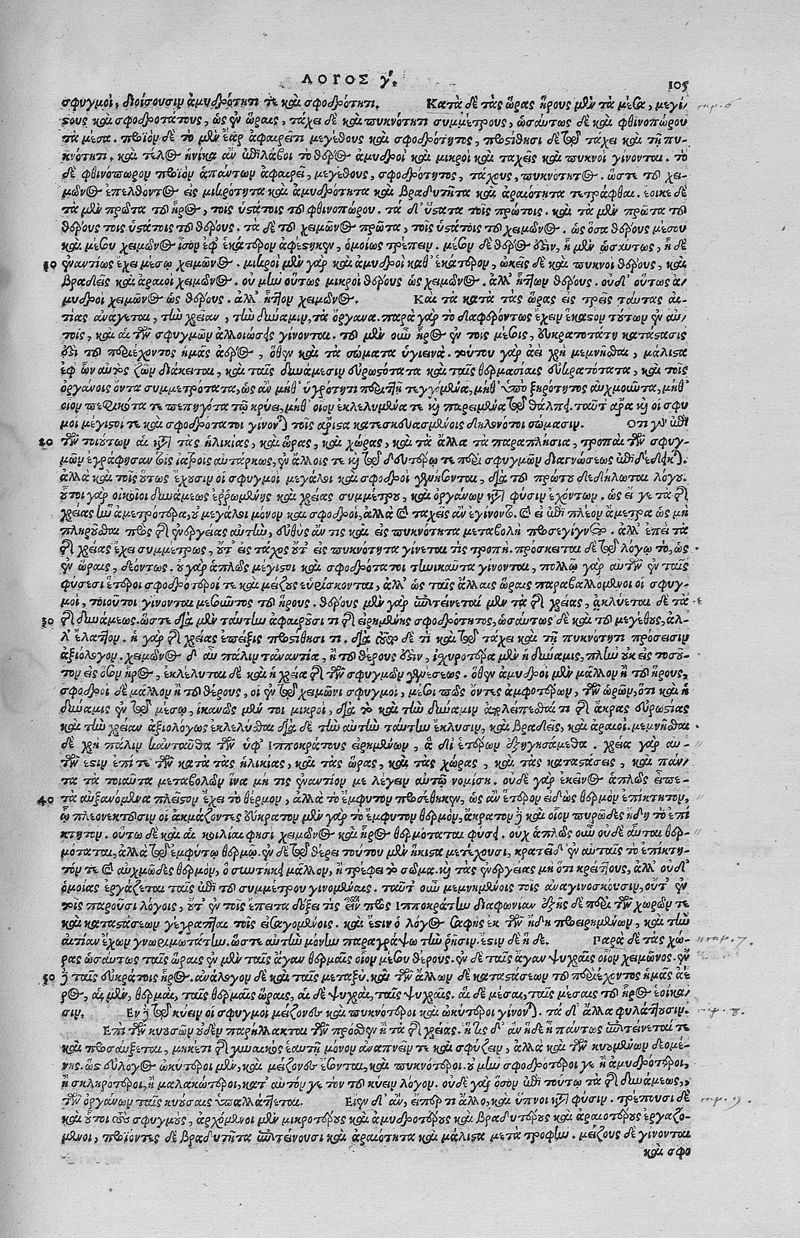 ΛΟΓΟΣ γ΄. 105
σφυγμοὶ, διοίσουσιν ἀμυδρότητί τε καὶ σφοδρότητι. Κατὰ δὲ τὰς ὥρας ἦρος μὲν τὰ μέσα, μεγί
στους καὶ σφοδροτάτους, ὡς ἐν ὥραις, τάχει δὲ καὶ πυκνότητι συμμέτρους, ὡσαύτως δὲ καὶ φθινοπώρου
τὰ μέσα. προϊὸν δὲ τὸ μὲν ἔαρ ἀφαιρεῖ τι μεγέθους καὶ σφοδρότητος, προστίθησι δὲ τῷ τάχει καὶ τῇ πυ
κνότητι. καὶ τέλος ἡνίκα ἂν ἐπιλάβοι τὸ θέρος ἀμυδροὶ καὶ μικροὶ καὶ ταχεῖς καὶ πυκνοὶ γίνονται. τὸ
δὲ φθινόπωρον προϊὸν ἁπάντων ἀφαιρεῖ, μεγέθους, σφοδρότητος, τάχους, πυκνότητος. ὥστε τοῦ χει-
μῶνος ἐπελθόντος εἰς μικρότητα καὶ ἀμυδρότητα καὶ βραδυτῆτα καὶ ἀραιότητα τετράφθαι. ἔοικε δὲ
τὰ μὲν πρῶτα τοῦ ἦρος, τοῖς ὑστάτοις τοῦ φθινοπώρου. τὰ δ' ὕστατα τοῖς πρώτοις. καὶ τὰ μὲν πρῶτα τοῦ
θέρους τοῖς ὑστάτοις τοῦ θέρους. τὰ δὲ τοῦ χειμῶνος πρῶτα, τοῖς ὑστάτοις τοῦ χειμῶνος. ὥστε θέρους μέσου
καὶ μέσου χειμῶνος ἴσον ἐφ' ἑκάτερον ἀφεστηκὼς, ὁμοίως τρέπειν. μέσον δὲ θέρος ἐστὶν, ᾗ μὲν ὡσαύτως, ᾗ δὲ
10 ἐναντίως ἔχει μέσῳ χειμῶνος. μικροὶ μὲν γὰρ καὶ ἀμυδροὶ καθ' ἑκάτερον, ὠκεῖς δὲ καὶ πυκνοὶ θέρους, καὶ
βραδεῖς καὶ ἀραιοὶ χειμῶνος. οὐ μὴν οὕτως μικροὶ θέρους ὡς χειμῶνος. ἀλλ' ἧττον θέρους. οὐδ' οὕτως ἀ-
μυδροὶ χειμῶνος ὡς θέρους. ἀλλ' ἧττον χειμῶνος. Καὶ τὰ κατὰ τὰς ὥρας εἰς τρεῖς ταύτας αἰ-
τίας ἀνάγεται, τὴν χρείαν, τὴν δύναμιν, τὰ ὄργανα. παρὰ γὰρ τὸ διαφερόντως ἔχειν ἕκαστον τούτων ἐν αὐ-
τοῖς, καὶ αἱ τῶν σφυγμῶν ἀλλοιώσεις γίνονται. τοῦ μὲν οὖν ἦρος ἐν τοῖς μέσοις, εὐκρατοτάτη κατάστασις
ἐστὶ τοῦ περιέχοντος ἡμᾶς ἀέρος, ὅθεν καὶ τὰ σώματα ὑγιεινά. τούτου γὰρ ἀεὶ χρὴ μεμνῆσθαι, μάλιστα
ἐφ' ὧν αὐτὸς ζώων διάκειται, καὶ ταῖς δυνάμεσιν εὐρωστότατα καὶ ταῖς θερμασίαις εὐκρατότατα, καὶ τοῖς
ὀργάνοις ὄντα συμμετρότατα, ὡς ἂν μήθ' ὑγρότητι περιττῇ τεγγόμενα, μήθ' ὑπὸ ξηρότητος αὐχμοῦντα, μήθ'
οἷον πεφρικότα τε πεπηγότα τῷ κρύει, μήθ' οἷον ἐκλελυμένα τε καὶ παρειμένα τῷ θάλπει. ταῦτ' ἄρα καὶ οἱ σφυ
μοὶ μέγιστοί τε καὶ σφοδρότατοι γίνονται τοῖς ἄριστα κατεσκευασμένοις δηλονότι σώμασιν. Ὅτι γὰρ ἐπὶ
20 τῶν τοιούτων αἱ κατὰ τὰς ἡλικίας, καὶ ὥρας, καὶ χώρας, καὶ τὰ ἄλλα τὰ παραπλήσια, τροπαὶ τῶν σφυγ-
μῶν ἐγράφησαν τοῖς ἰατροῖς αὐτάρκως, ἐν ἄλλοις τε καὶ τῷ δευτέρῳ τε περὶ σφυγμῶν διαγνώσεως ἐπιδέδεικται.
ἀλλὰ καὶ τοῖς οὕτως ἔχουσιν οἱ σφυγμοὶ μεγάλοι καὶ σφοδροὶ γενήσονται, διὰ τοῦ πρώτου δεδήλωται λόγου.
οὗτοι γὰρ οἰκεῖοι δυνάμεως ἐρρωμένης καὶ χρείας συμμέτρου, καὶ ὀργάνων κατὰ φύσιν ἐχόντων. ὡς εἴ γε τὰ τῆς
χρείας ἦν ἀμετρότερα, οὐ μεγάλοι μόνον καὶ σφοδροὶ, ἀλλὰ καὶ ταχεῖς ἂν ἐγίνοντο. καὶ εἰ ἐπὶ πλέον ἄμετρα ὡς μὴ
πληροῦσθαι πρὸς τῆς ἐνεργείας αὐτὴν, εὐθὺς ἄν τις καὶ εἰς πυκνότητα μεταβολὴ προσεγίγνετο. ἀλλ' ἐπεὶ τὰ
τῆς χρείας ἔχει συμμέτρως, οὔτ' εἰς τάχος οὔτ' εἰς πυκνότητα γίνεταί τις τροπή. πρόσκειται δὲ τῷ λόγῳ τὸ, ὡς
ἐν ὥραις, δεόντως. οὐ γὰρ ἁπλῶς μέγιστοι καὶ σφοδρότατοι τηνικαῦτα γίνονται, πολλῷ γὰρ αὐτῶν ἐν ταῖς
φύσεσι ἕτεροι σφοδρότεροί τε καὶ μείζους εὑρίσκονται, ἀλλ' ὡς ταῖς ἄλλαις ὥραις παραβαλλόμενοι οἱ σφυγ-
μοὶ, τοιοῦτοι γίνονται μεσοῦντος τοῦ ἦρος. θέρους μὲν γὰρ ἐπιτείνεται μὲν τὰ τῆς χρείας, ἐκλύεται δὲ τὰ
30 τῆς δυνάμεως. ὥστε διὰ μὲν ταύτην ἀφαιροῦσί τι τῆς εἰρημένης σφοδρότητος, ὡσαύτως δὲ καὶ τοῦ μεγέθους, ἀλ-
λ' ἔλαττον. ἡ γὰρ τῆς χρείας ἔπειξις προστίθησί τι. διὰ τοῦτο δὲ τι καὶ τῷ τάχει καὶ τῇ πυκνότητι πρόσεισιν
ἀξιόλογον. χειμῶνος δ' αὖ πάλιν τἀναντία, ἢ τοῦ θέρους ἐστὶν, ἰσχυροτέρα μὲν ἡ δύναμις, πλὴν οὐκ εἰς τοσοῦ-
τον εἰς ὅσον ἦρος, ἐκλέλυται δὲ καὶ ἡ χρεία τῆς τῶν σφυγμῶν γενέσεως. ὅθεν ἀμυδροὶ μὲν μᾶλλον ἢ τοῦ ἦρους,
σφοδροὶ δὲ μᾶλλον ἢ τοῦ θέρους, οἱ ἐν τῷ χειμῶνι σφυγμοὶ, μέσοι πως ὄντες ἀμφοτέρων, τῶν ὡρῶν, ὅτι καὶ ἡ
δύναμις ἐν τῷ μέσῳ, ἱκανῶς μέν τοι μικροὶ, διὰ τὸ καὶ τὴν δύναμιν ἀπολείπεσθαί τι τῆς ἄκρας εὐρωστίας
καὶ τὴν χρείαν ἀξιολόγως ἐκλελύσθαι διὰ δὲ τὴν αὐτὴν ταύτην ἔκλυσιν, καὶ βραδεῖς, καὶ ἀραιοί. μεμνῆσθαι
δὲ χρὴ πάλιν κἀνταῦθα τῶν ὑφ' Ἱπποκράτους εἰρημένων, ἃ δι' ἑτέρων ἐξηγησάμεθα. χρεία γὰρ αὐ-
τῶν ἐστιν ἐπί τε τῶν κατὰ τὰς ἡλικίας, καὶ τὰς ὥρας, καὶ τὰς χώρας, καὶ τὰς καταστάσεις, καὶ πάν-
τα τὰ τοιαῦτα μεταβολῶν ἵνα μή τις ἐναντίον με λέγειν αὐτῷ νομίσῃ. οὐδὲ γὰρ ἐκεῖνος ἁπλῶς εἶπε-
40 τὰ αὐξανόμενα πλεῖστον ἔχει τὸ θερμὸν, ἀλλὰ τὸ ἔμφυτον προσέθηκεν, ὡς ἂν ἕτερον εἰδὼς θερμὸν ἐπίκτητον,
ᾧ πλεονεκτοῦσιν οἱ ἀκμάζοντες εὔκρατον μὲν γὰρ τὸ ἔμφυτον θερμὸν, ἄκρατον δὲ καὶ οἷον πυρῶδες ἤδη τὸ ἐπί
κτητον. οὕτω δὲ καὶ αἱ κοιλίαι φησὶ χειμῶνος καὶ ἦρος θερμόταται φύσει. οὐχ ἁπλῶς οὖν οὐδὲ αὗται θερ-
μόταται, ἀλλὰ τῷ ἐμφύτῳ θερμῷ. ἐν δὲ τῷ θέρει τούτου μὲν ἥκιστα μετέχουσι, κρατεῖ δ' ἐν αὐταῖς τὸ ἐπίκτη-
τον καὶ αὐχμῶδες θερμὸν, ὃ συντήκει μᾶλλον, ἢ τρέφει τὸ σῶμα. καὶ τὰς ἐνεργείας μὴ ὅτι κρείττους, ἀλλ' οὐδ'
ὁμοίας ἐργάζεται ταῖς ἐπὶ τοῦ συμμέτρου γινομέναις. ταῦτ' οὖν μεμνημένοις τοῖς ἀναγινώσκουσιν, οὔτ' ἐν
τοῖς παροῦσι λόγοις, οὔτ' ἐν τοῖς ἔπειτα δόξει τις εἶναι πρὸς Ἱπποκράτην διαφωνία ἑξῆς δὲ περὶ τῶν χωρῶν τε
καὶ καταστάσεων γέγραπται τοῖς εἰσαγομένοις. καὶ ἔστιν ὁ λόγος σαφὴς ἐκ τῶν ἤδη προειρημένων, καὶ τὴν
αἰτίαν ἔχων γνωριμωτάτην. ὥστε αὐτὴν μόνην παραγράψω τὴν ῥῆσιν. ἔστιν δὲ ἥδε. Παρὰ δὲ τὰς χώ-
ρας ὡσαύτως ταῖς ὥραις ἐν μὲν ταῖς ἄγαν θερμαῖς οἷον μέσου θέρους. ἐν δὲ ταῖς ἄγαν ψυχραῖς οἷον χειμῶνος. ἐν
50 δὲ ταῖς εὐκράτοις ἦρος. ἀνάλογον δὲ καὶ ταῖς μεταξύ. καὶ τῶν ἄλλων δὲ καταστάσεων τοῦ περιέχοντος ἡμᾶς ἀέ-
ρος, αἱ μὲν, θερμαὶ, ταῖς θερμαῖς ὥραις, αἱ δὲ ψυχραὶ, ταῖς ψυχραῖς. αἱ δὲ μέσαι, ταῖς μέσαις τοῦ ἦρος ἐοίκα-
σιν. Ἐν δὲ τῷ κύειν οἱ σφυγμοὶ μείζονες καὶ πυκνότεροι καὶ ὠκύτεροι γίνονται. τὰ δ' ἄλλα φυλάττουσιν.
Ἐπὶ τῶν κυουσῶν οὐδὲν παρήλλακται τῶν πρόσθεν ἢ τὰ τῆς χρείας. ἥτις δ' ἂν ᾖ δὲ ᾖ πάντως ἐπιτείνεταί τε
καὶ προσαύξεται, μηκέτι τῆς γυναικὸς ἑαυτῇ μόνον ἀναπνεῖν τε καὶ σφύζειν, ἀλλὰ καὶ τῶν κυουμένων δεομέ-
νης. ὡς εὐλόγως ὠκύτεροι μὲν, καὶ μείζονες ἔσονται, καὶ πυκνότεροι. οὐ μὴν σφοδρότεροί γε ἢ ἀμυδρότεροι,
ἢ σκληρότεροι, ἢ μαλακώτεροι, κατ' αὐτόν γε τὸν τοῦ κυεῖν λόγον. οὐδὲ γὰρ ὅσον ἐπὶ τούτῳ τὰ τῆς δυνάμεως,
τῶν ὀργάνων ταῖς κυούσαις ὑπαλλάττεται. Εἰσὶν δ' ἂν, εἴπερ τι ἄλλο, καὶ ὕπνοι κατὰ φύσιν. τρέπουσι δὲ
καὶ οὗτοι τοὺς σφυγμοὺς, ἀρχόμενοι μὲν μικροτέρους καὶ ἀμυδροτέρους καὶ βραδυτέρους καὶ ἀραιοτέρους ἐργαζό-
μενοι, προϊόντες δὲ βραδυτῆτα ἐπιτείνουσι καὶ ἀραιότητα καὶ μάλιστα μετὰ τροφήν. μείζους δὲ γίνονται
καὶ σφο